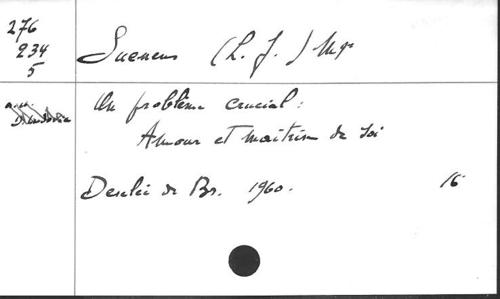 276
234
5
Suenens (L. J.) Mgr
Un problème crucial :
Amour et maîtrise de soi
Desclée de Br. 1960. 16